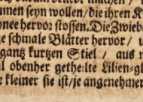 umen seyn wollen / die ihren K
onne hervor stossen. Die Zwieb
e schmale Blätter hervor /
gantz kurtzen Stiel / aus
l obenher getheilte Lilien-gl
r kleiner sie ist / je angenehmer